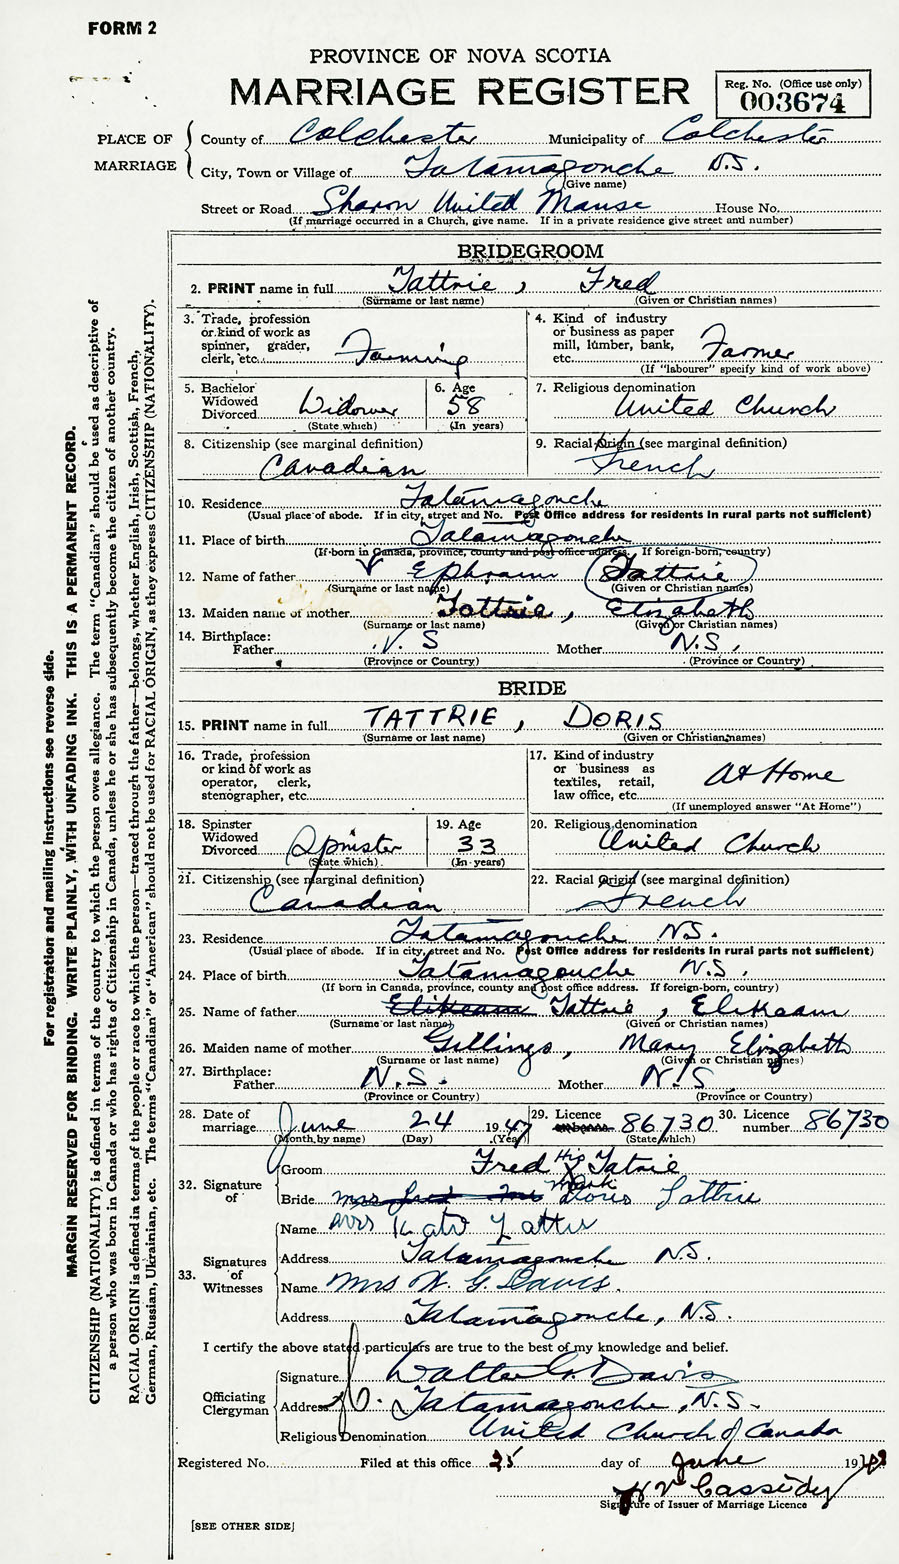 FORM 2
PROVINCE OF NOVA SCOTIA
MARRIAGE REGISTER
Reg. No. (Office use only)
003674
PLACE OF MARRIAGE
County of Colchester Municipality of Colchester
City, Town or Village of Tatamagouche N.S.
(Give name)
Street or Road Sharon United Manse House No.
(If marriage occurred in a Church, give name. If in a private residence give street and number)
BRIDEGROOM
2. PRINT name in full Tattrie, Fred
(Surname or last name) (Given or Christian names)
3. Trade, profession or kind of work as spinner, grader, clerk, etc. Farming
4. Kind of industry or business as paper mill, lumber, bank, etc. Farmer
(If "labourer" specify kind of work above)
5. Bachelor Widowed Divorced Widower
(State which)
6. Age 58
(In years)
7. Religious denomination United Church
8. Citizenship (see marginal definition) Canadian
9. Racial Origin (see marginal definition) French
10. Residence Tatamagouche
(Usual place of abode. If in city, street and No. Post Office address for residents in rural parts not sufficient)
11. Place of birth Tatamagouche
(If born in Canada, province, county and post office address. If foreign-born, country)
12. Name of father Ephraim Tattrie
(Surname or last name) (Given or Christian names)
13. Maiden name of mother Tattrie, Elizabeth
(Surname or last name) (Given or Christian names)
14. Birthplace:
Father N.S Mother N.S.
(Province or Country) (Province or Country)
BRIDE
15. PRINT name in full TATTRIE, DORIS
(Surname or last name) (Given or Christian names)
16. Trade, profession or kind of work as operator, clerk, stenographer, etc.
17. Kind of industry or business as textiles, retail, law office, etc. At Home
(If unemployed answer "At Home")
18. Spinster Widowed Divorced Spinster
(State which)
19. Age 33
(In years)
20. Religious denomination United Church
21. Citizenship (see marginal definition) Canadian
22. Racial Origin (see marginal definition) French
23. Residence Tatamagouche N.S.
(Usual place of abode. If in city, street and No. Post Office address for residents in rural parts not sufficient)
24. Place of birth Tatamagouche N.S.
(If born in Canada, province, county and post office address. If foreign-born, country)
25. Name of father Elikeam Tattrie, Elikeam
(Surname or last name) (Given or Christian names)
26. Maiden name of mother Gillings, Mary Elizabeth
(Surname or last name) (Given or Christian names)
27. Birthplace:
Father N.S. Mother N.S
(Province or Country) (Province or Country)
28. Date of marriage June 24 1947
(Month by name) (Day) (Year)
29. Licence 86730
(State which)
30. Licence number 86730
32. Signature of
Groom Fred His X mark Tatrie
Bride Doris Tattrie
33. Signatures of Witnesses
Name Mrs Kate Tattrie
Address Tatamagouche N.S.
Name Mrs W. G. Davis.
Address Tatamagouche, N.S.
I certify the above stated particulars are true to the best of my knowledge and belief.
Officiating Clergyman
Signature Walter G. Davis
Address Tatamagouche, N.S.
Religious Denomination United Church of Canada
Registered No. Filed at this office 25 day of June 19
H V Cassidy
Signature of Issuer of Marriage Licence
[SEE OTHER SIDE]
For registration and mailing instructions see reverse side.
MARGIN RESERVED FOR BINDING. WRITE PLAINLY, WITH UNFADING INK. THIS IS A PERMANENT RECORD.
CITIZENSHIP (NATIONALITY) is defined in terms of the country to which the person owes allegiance. The term "Canadian" should be used as descriptive of
a person who was born in Canada or who has rights of Citizenship in Canada, unless he or she has subsequently become the citizen of another country.
RACIAL ORIGIN is defined in terms of the people or race to which the person—traced through the father—belongs, whether English, Irish, Scottish, French,
German, Russian, Ukrainian, etc. The terms "Canadian" or "American" should not be used for RACIAL ORIGIN, as they express CITIZENSHIP (NATIONALITY).